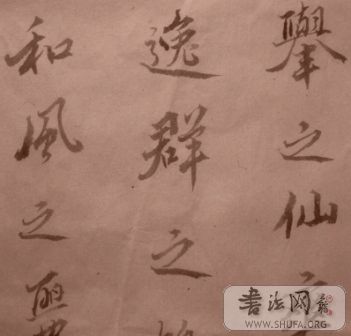 舉之仙
逸群之
和風之
書法网
WWW.SHUFA.ORG